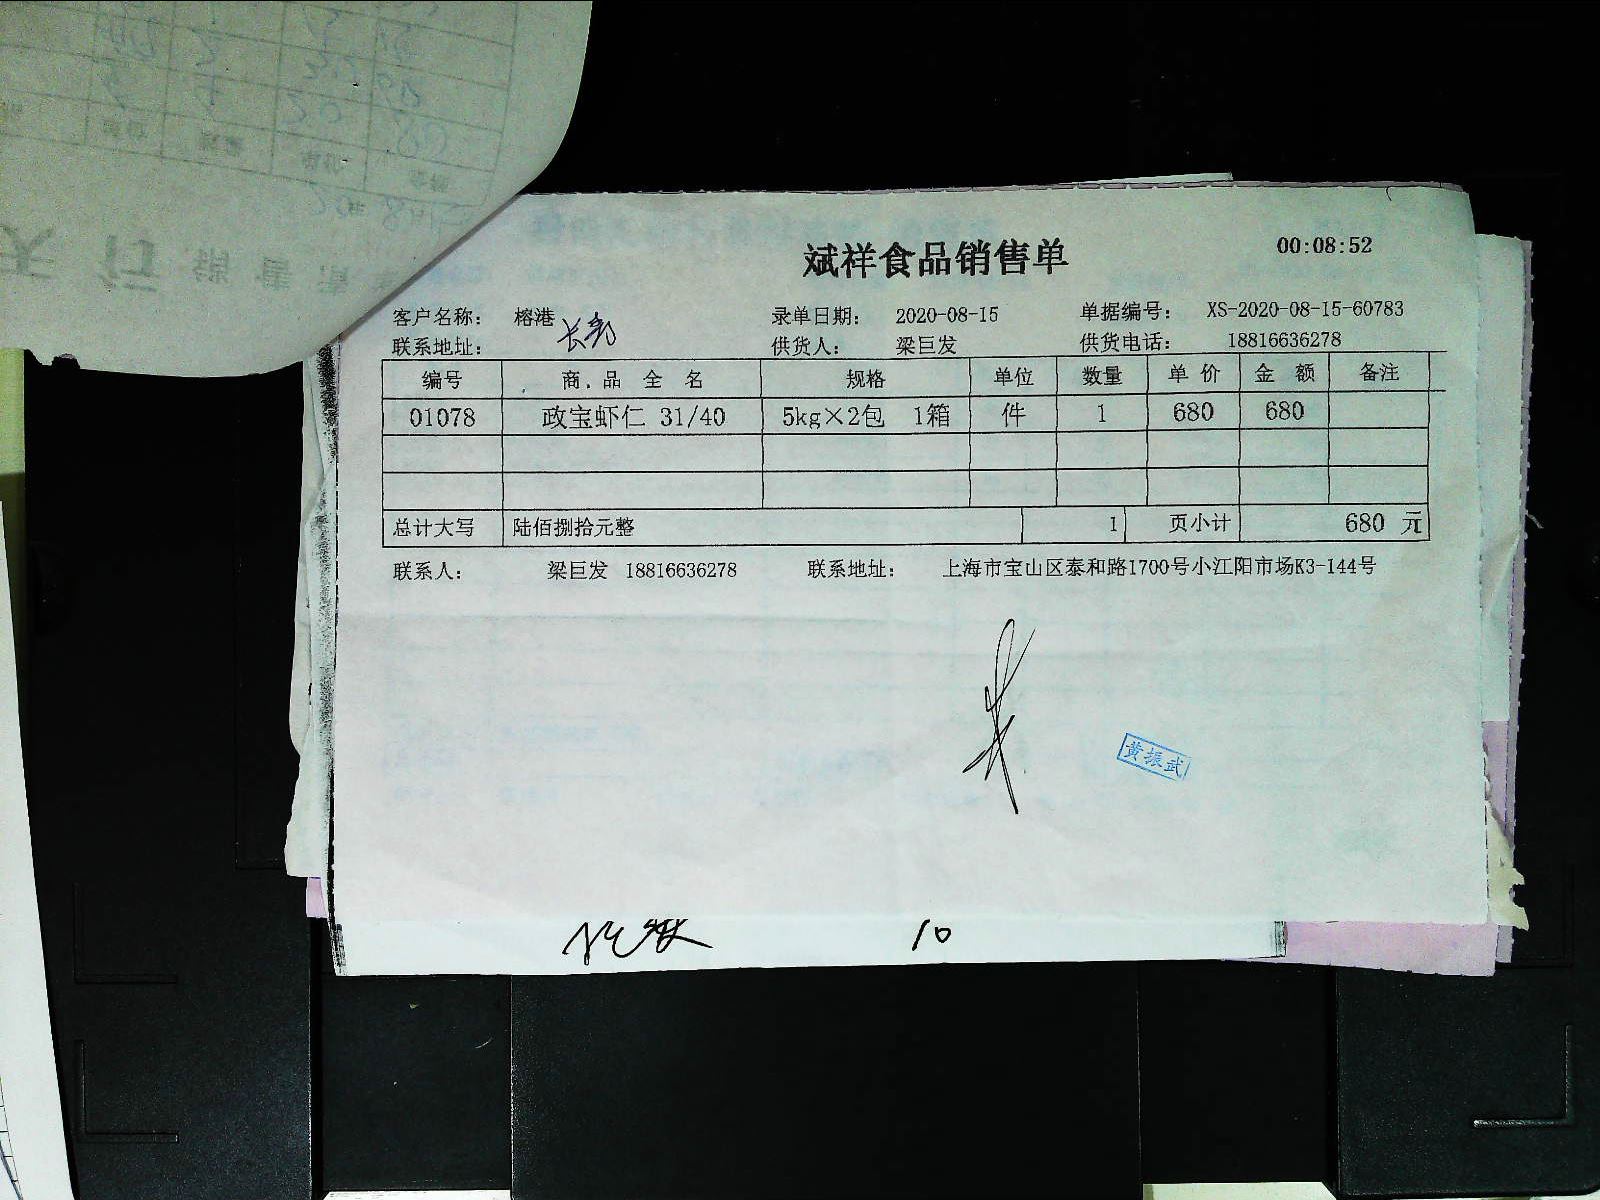 斌祥食品销售单 00:08:52
客户名称： 榕港 录单日期： 2020-08-15 单据编号： XS-2020-08-15-60783
联系地址： 供货人： 梁巨发 供货电话： 18816636278
编号 商.品 全 名 规格 单位 数量 单 价 金 额 备注
01078 政宝虾仁 31/40 5kg×2包 1箱 件 1 680 680
总计大写 陆佰捌拾元整 1 页小计 680 元
联系人： 梁巨发 18816636278 联系地址： 上海市宝山区泰和路1700号小江阳市场K3-144号
黄振武
10